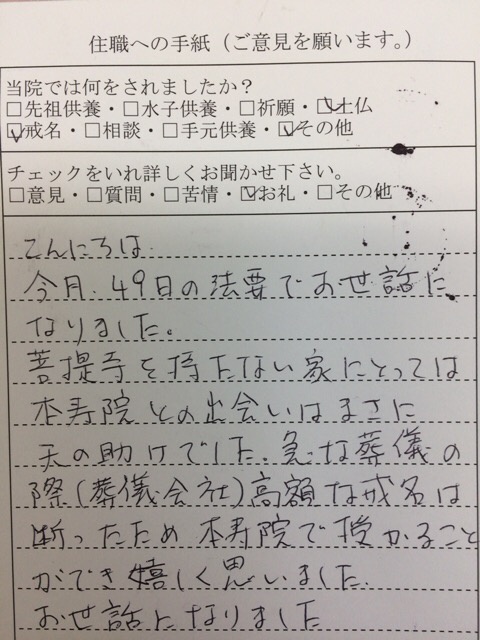 住職への手紙（ご意見を願います。）
当院では何をされましたか？
□先祖供養・□水子供養・□祈願・☑土仏
☑戒名・□相談・□手元供養・☑その他
チェックをいれ詳しくお聞かせ下さい。
□意見・□質問・□苦情・☑お礼・□その他
こんにちは
今月、49日の法要でお世話に
なりました。
菩提寺を持たない家にとっては
本寿院との出会いはまさに
天の助けでした。急な葬儀の
際(葬儀会社)高額な戒名は
断ったため本寿院で授かること
ができ嬉しく思いました.
お世話になりました